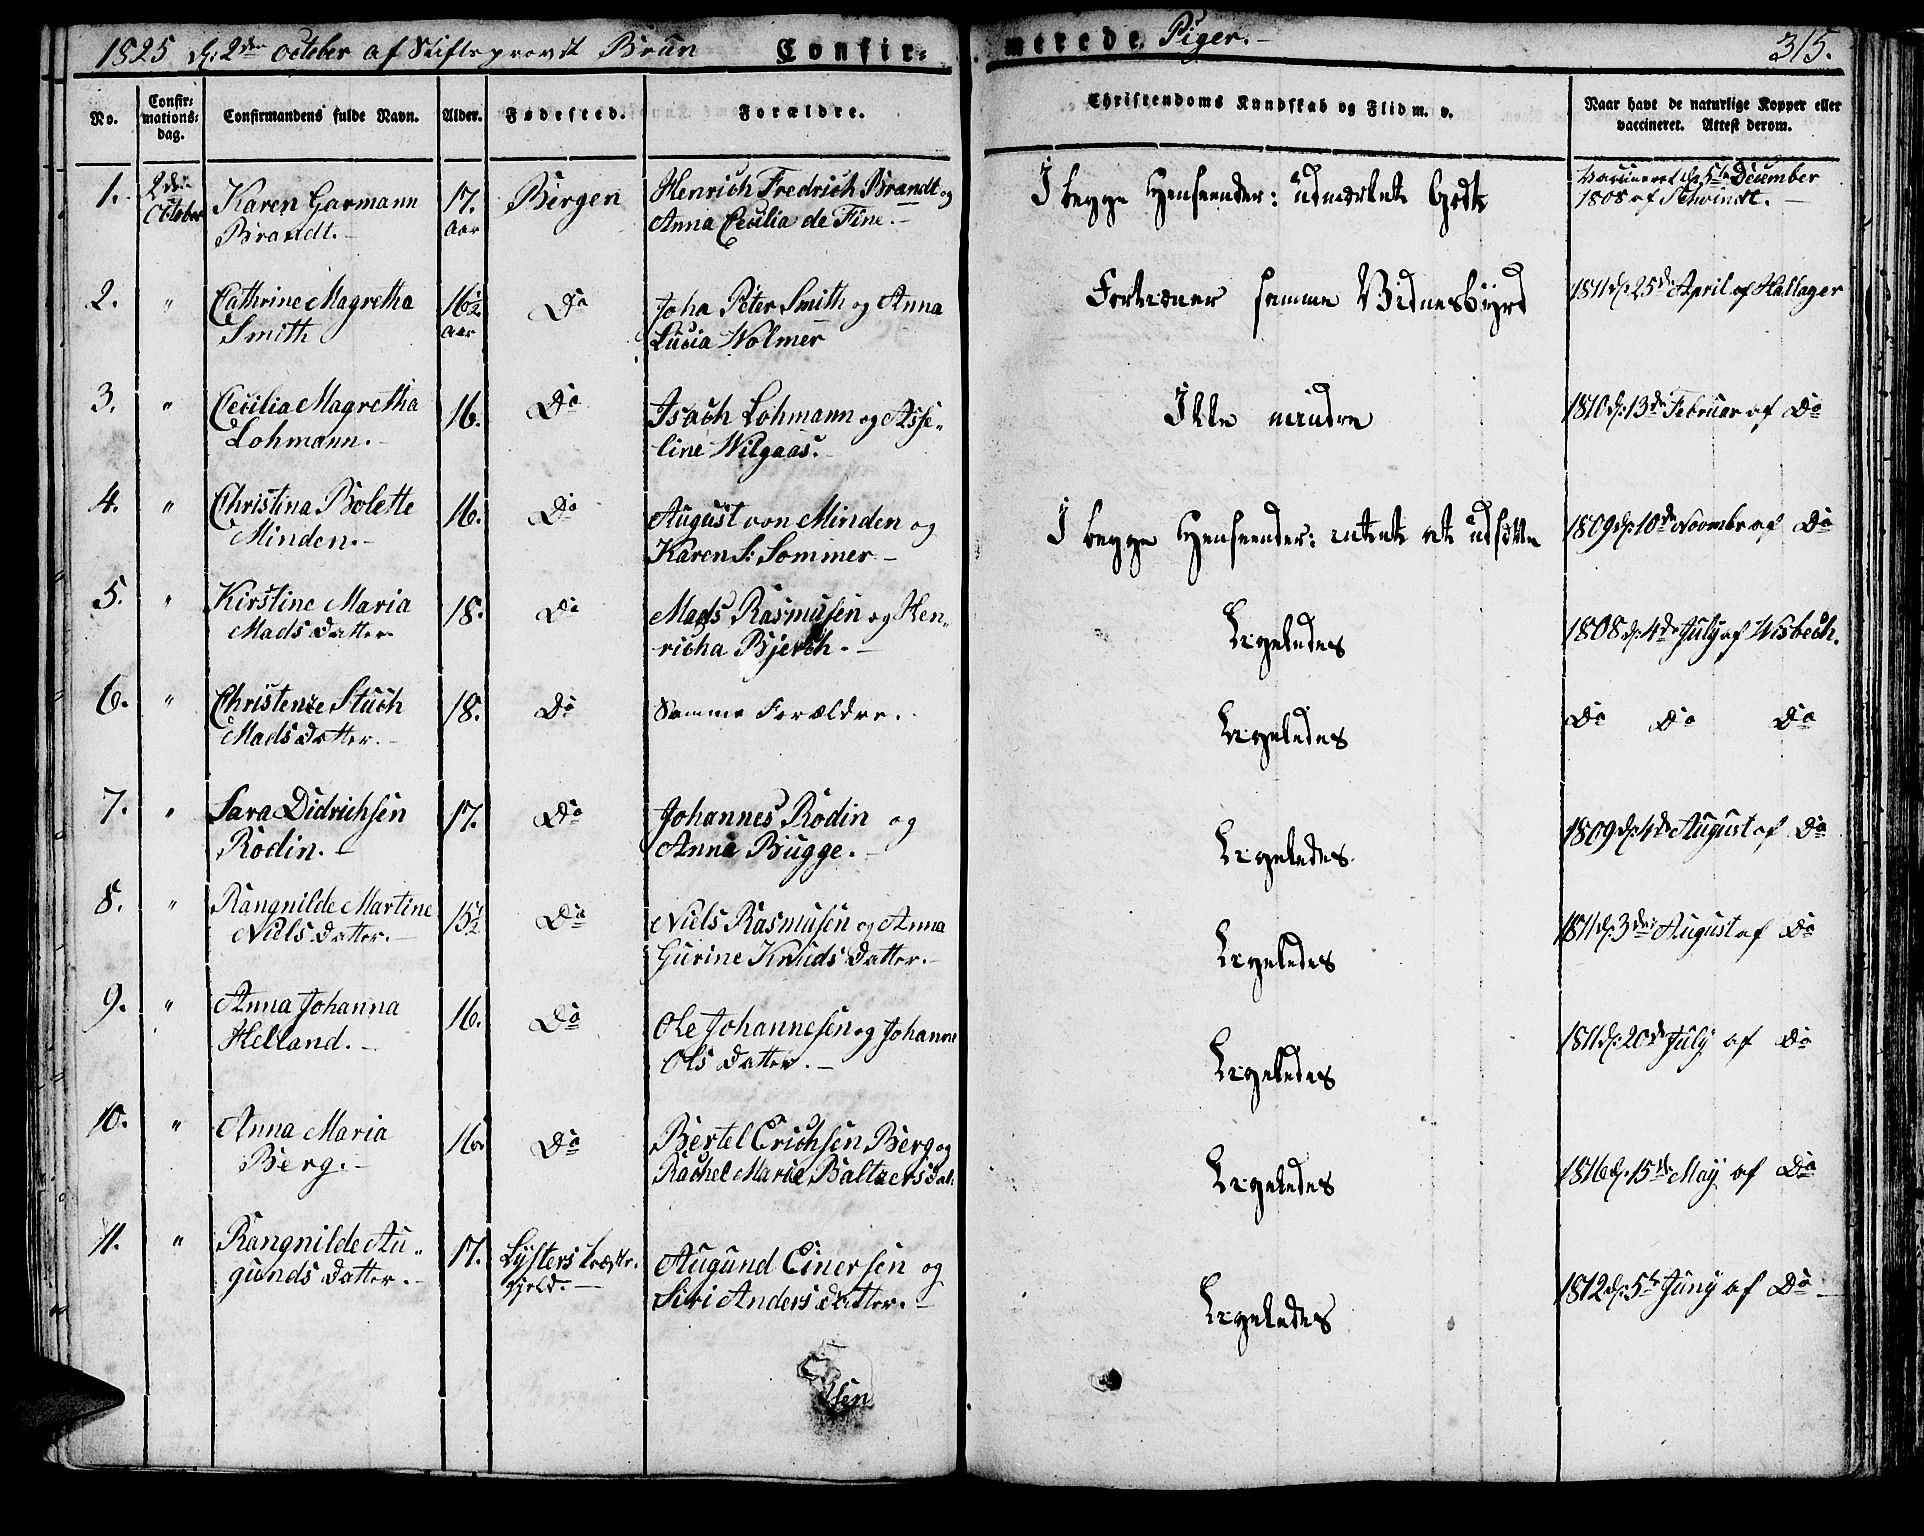 1825 d: 2den October af Stiftsprovst Brun Confir:
merede Piger.-
315.
No.
Confir:
mations:
dag.
Confirmandens fulde Navn.
Alder.
Fødested.
Forældre.
Christendoms Kundskab og Flid m. v.
Naar havt de naturlige Kopper eller
vaccineret. Attest derom.
1.
2den
October
Karen Garmann
Brandt.-
17.
Aar
Bergen
Henrich Fredrich Brandt og
Anna Cecilia de Fine.-
I begge Henseender: udmærket Godt
Vaccineret d: 5te December
1808 af Schvindt.-
2.
"
Cathrine Magretha
Smith
16½
aar
Do
Joha Peter Smith og Anna
Lucia Wolmer
Fortiener samme Vidnesbyrd
1811 d: 25de April af Hallager
3.
"
Cecilia Magretha
Lohmann.-
16.
Do
Isach Lohmann og Asse-
line Wilgaas.
Ikke mindre
1810 d: 13de Februar af Do
4.
"
Christina Bolette
Minden.-
16.
Do
August von Minden og
Karen S: Sommer-
I begge Henseender: intet at udsætte
1809 d: 10de Noembr af Do
5.
"
Kirstine Maria
Mads Datter
18.
Do
Mads Rasmusen og Hen-
richa Bjerch.-
Ligeledes
1808 d: 4de July af Wisbech.
6.
"
Christense Stuch
Mads Datter.-
18.
Do
Samme Forældre.
Ligeledes
Do Do Do
7.
"
Sara Didrichsen
Rodin.-
17.
Do
Johannes Rodin og
Anna Bugge.-
Ligeledes
1809 d: 4de August af Do
8.
"
Rangnilde Martine
Niels Datter.-
15½
Do
Niels Rasmusen og Anna
Gurine Knuds Datter.-
Ligeledes
1811 d: 3die August af Do
9.
"
Anna Johanna
Helland.-
16.
Do
Ole Johannesen og Johanne
Ols Datter.-
Ligeledes
1811 d: 20de July af Do
10.
"
Anna Maria
Berg.-
16
Do
Bertel Erichsen Berg og
Rachel Marie Baltzers Dat:
Ligeledes
1816 d: 15de May af Do
11.
"
Rangnilde Au-
gunds Datter.-
17.
Lysters Præste-
gjeld.-
Augund Einersen og
Siri Anders Datter.-
Ligeledes
1812 d: 5te Juny af Do-
sen